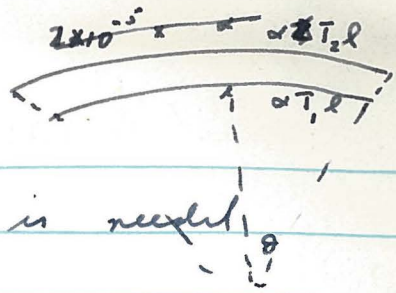 2×10⁻⁵ × α αT₂l
αT₁l
is needed
θ